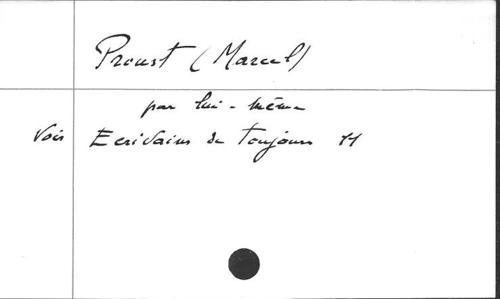 Proust (Marcel)
par lui-même
Voir Ecrivains de Toujours 11